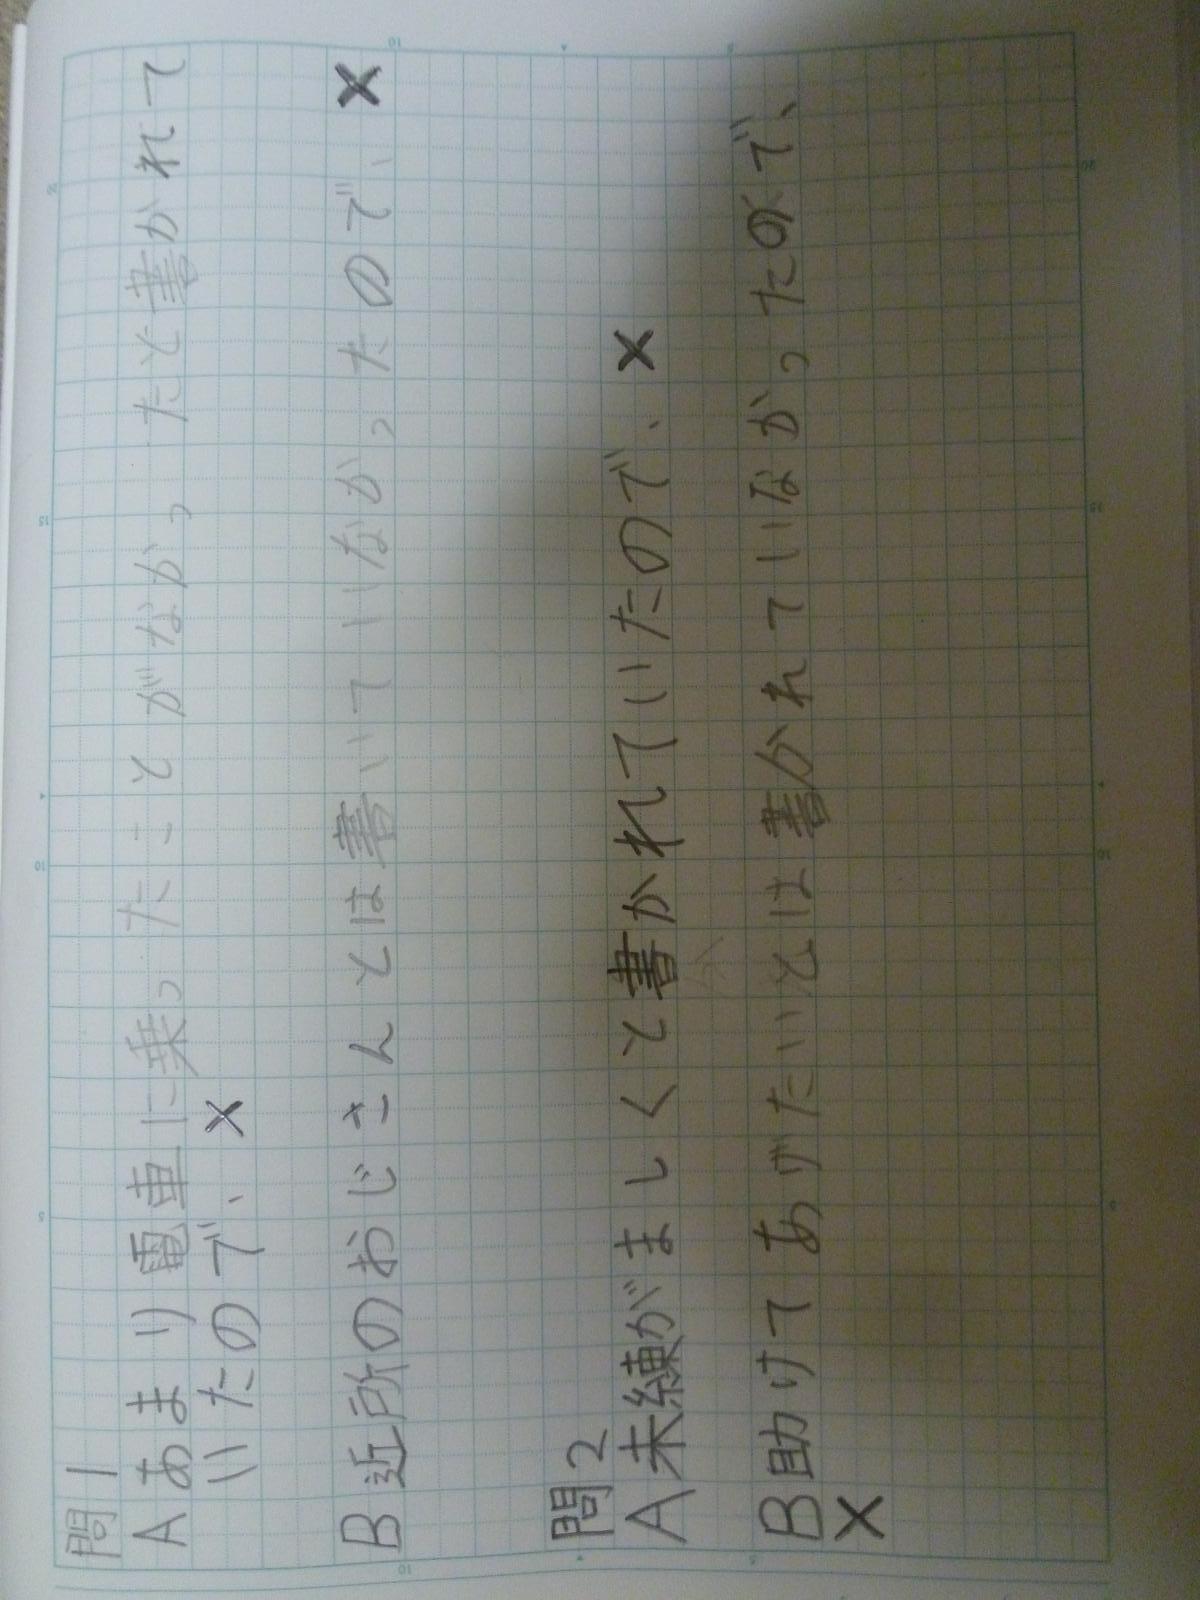 問1
A あまり電車に乗ったことがなかったと書かれて
いたので、×
B 近所のおじさんとは書いていなかったので、×
問2
A 未練がましくと書かれていたので、×
B 助けてあげたいとは書かれていなかったので、
×